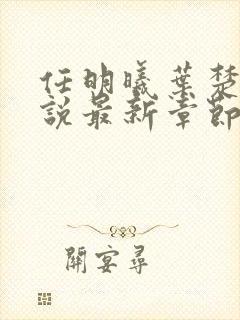 任明曦葉楚
說最新章節
開宴尋